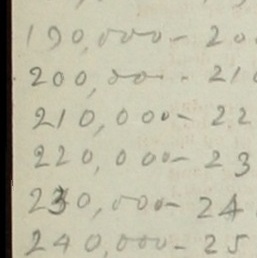 190,000 - 20
200,000 - 21
210,000 - 22
220,000 - 23
230,000 - 24
240,000 - 25